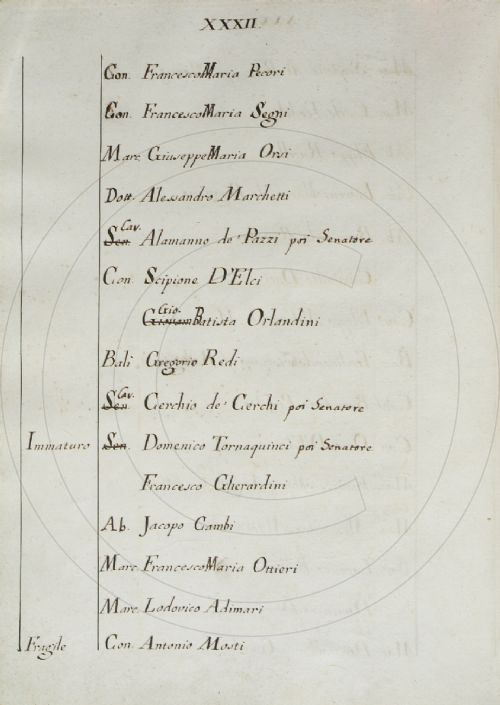 XXXII.
Con. FrancescoMaria Pecori
Con. FrancescoMaria Segni
Marc. GiuseppeMaria Orsi
Dott. Alessandro Marchetti
Cav.
Sen. Alamanno de' Pazzi poi Senatore
Con. Scipione D'Elci
Gio.
Batista Orlandini
Balì Gregorio Redi
Cav.
Sen. Cerchio de' Cerchi poi Senatore
Immaturo Sen. Domenico Tornaquinci poi Senatore
Francesco Gherardini
Ab. Jacopo Gambi
Marc. FrancescoMaria Ottieri
Marc. Lodovico Adimari
Fragile Con. Antonio Mosti